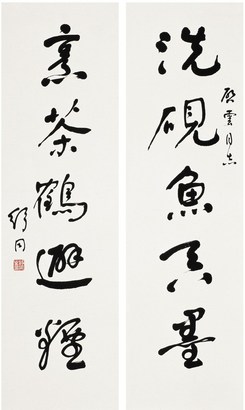 洗硯魚吞墨
雲同志
烹茶鶴避煙
舒同